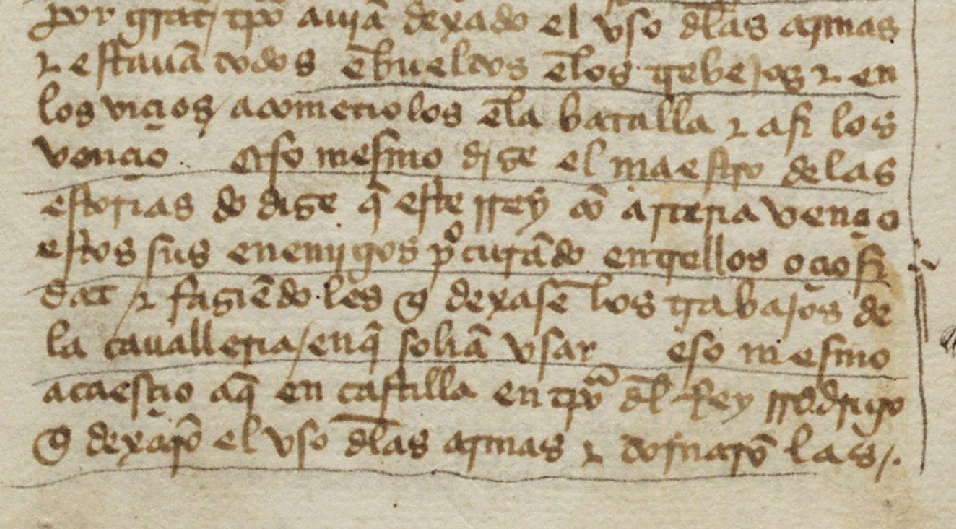 por grãt tpõ aviã dexado el vso dlas armas
τ estavã todos ẽbueltos ẽlos trebejos τ en
los vicios / acometiolos ẽla batalla τ asi los
vencio eso mesmo dize el maestro delas
estorias do dize q̃ este rrey cõ arteria vencio
estos sus enemigos p̃curãdo entrellos ociosi
dat τ faziẽdo les q̃ dexasẽ los trabajos de
la cavalleria / en q̃ soliã vsar eso mesmo
acaescio aq̃ en castilla en tpõ dl Rey rrodrigo
q̃ dexarõ el vso dlas armas τ las /.